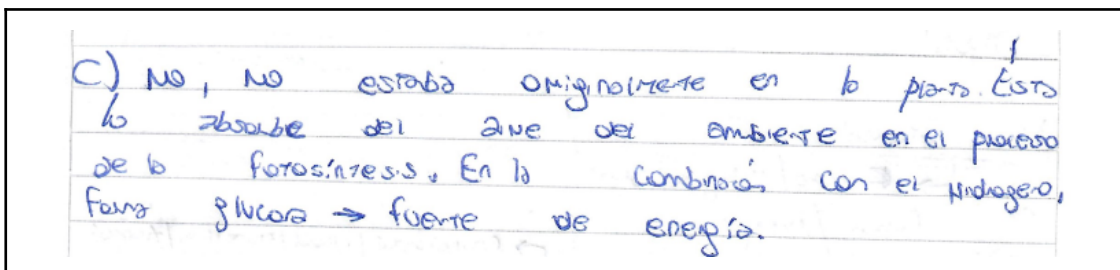 C) No, no estaba originalmente en la planta. Ésta
lo absorbe del aire del ambiente en el proceso
de la fotosíntesis. En la combinación con el hidrógeno,
forma glucosa → fuente de energía.